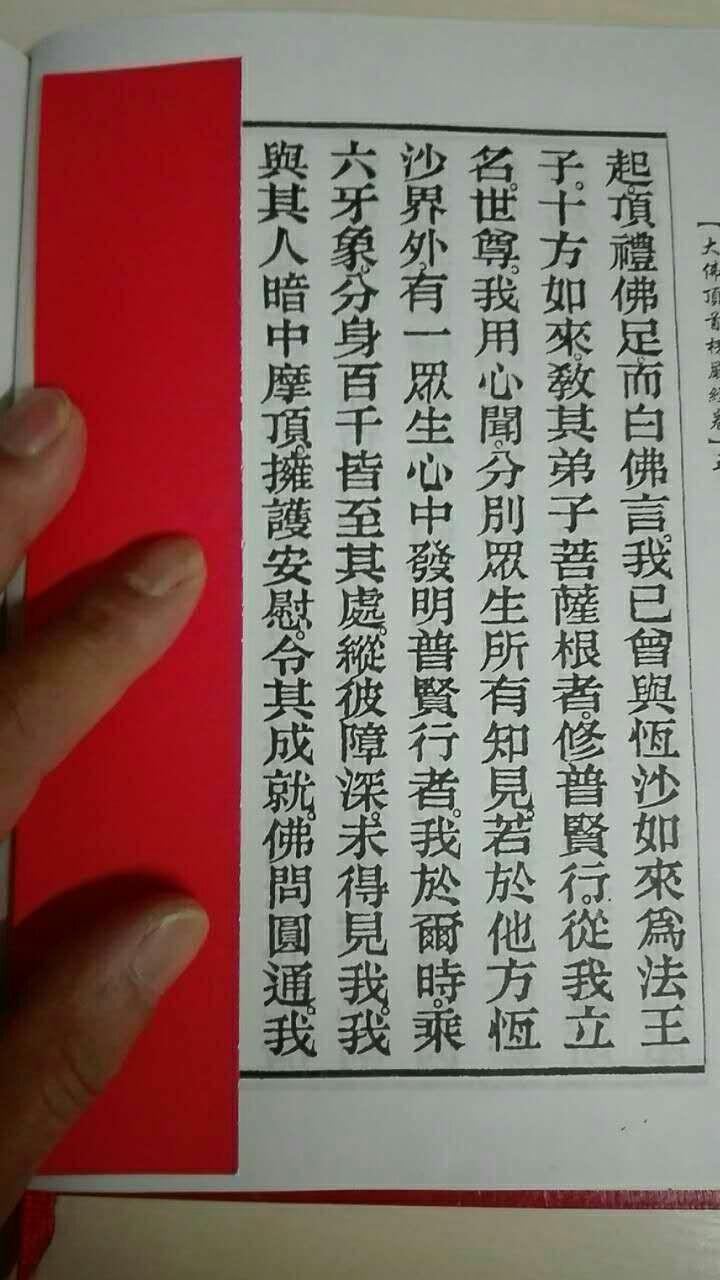 【大佛頂首楞嚴經卷】
起。頂禮佛足。而白佛言。我已曾與恆沙如來為法王
子。十方如來。教其弟子菩薩根者。修普賢行。從我立
名。世尊。我用心聞。分別眾生所有知見。若於他方恆
沙界外。有一眾生心中發明普賢行者。我於爾時。乘
六牙象。分身百千皆至其處。縱彼障深。未得見我。我
與其人暗中摩頂。擁護安慰。令其成就。佛問圓通。我